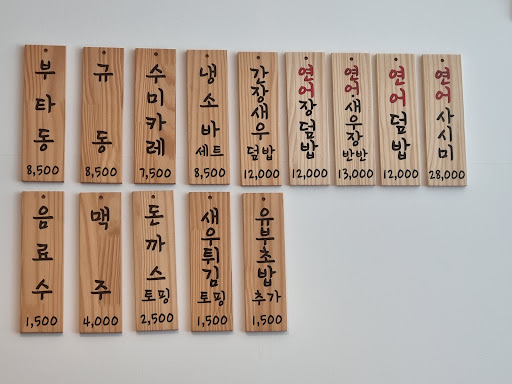 부타동
8,500
규동
8,500
수미카레
7,500
냉소바
세트
8,500
간장새우
덮밥
12,000
연어장덮밥
12,000
연어·새우장
반반
13,000
연어덮밥
12,000
연어사시미
28,000
음료수
1,500
맥주
4,000
돈까스
토핑
2,500
새우튀김
토핑
1,500
유부초밥
추가
1,500